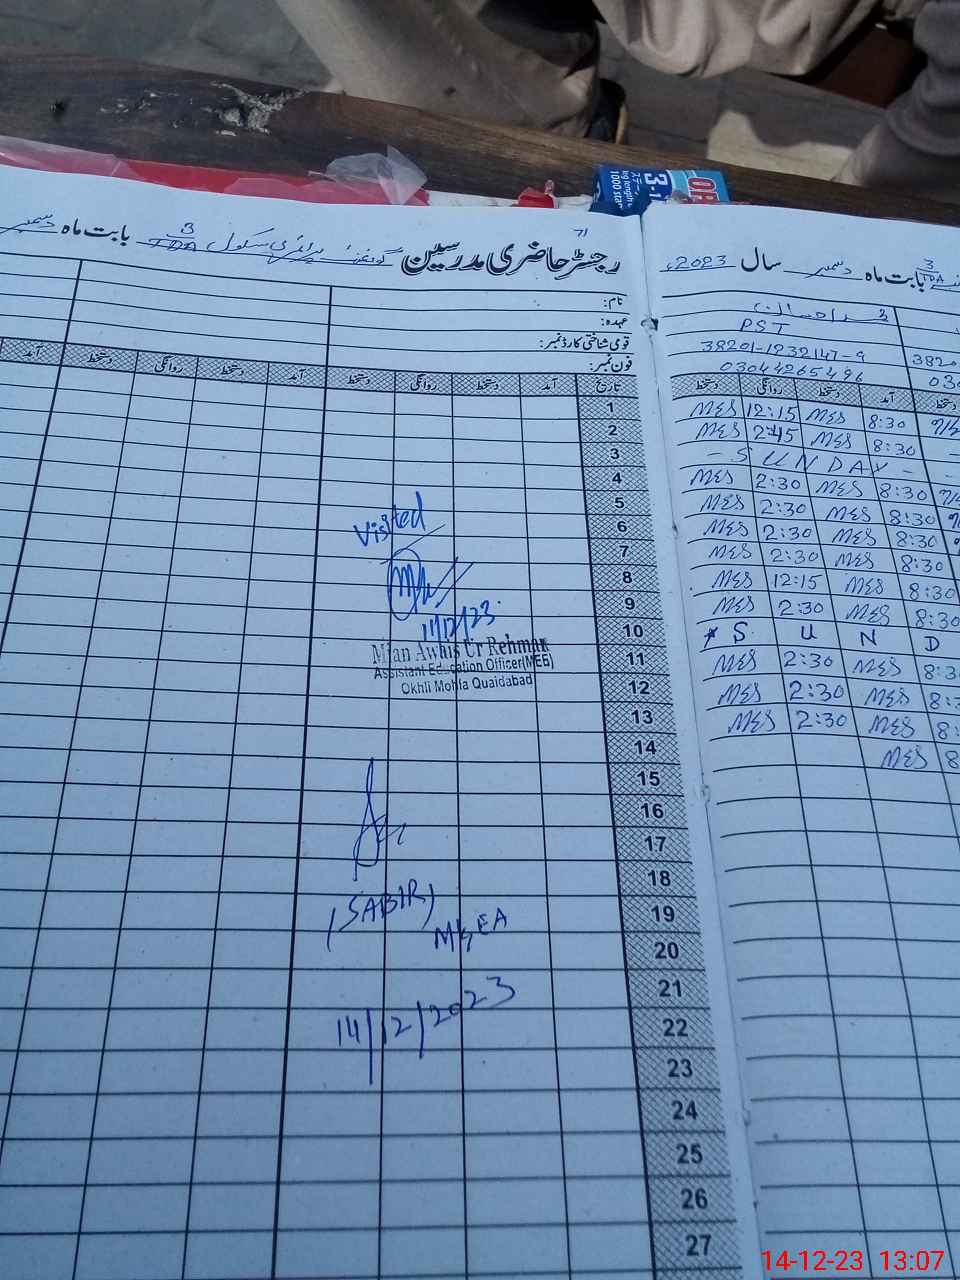 71
رجسٹر حاضری مدرسین گورنمنٹ پرائمری سکول 3/TDA بابت ماہ دسمبر
نام:
عہدہ:
قومی شناختی کارڈ نمبر:
فون نمبر:
تاریخ آمد دستخط روانگی دستخط آمد دستخط روانگی دستخط آمد
1
2
3
4
5
6
7
8
9
10
11
12
13
14
15
16
17
18
19
20
21
22
23
24
25
26
27
Visited
11/12/23
Mian Awais Ur Rehman
Assistant Education Officer(MEE)
Okhli Mohla Quaidabad
(SABIR)
MEA
14/12/2023
3/TDA بابت ماہ دسمبر سال 2023ء
PST
38201-1232147-9 382
03044265496 030
دستخط آمد دستخط روانگی دستخط
MES 12:15 MES 8:30
MES 2:45 MES 8:30
- S U N D A Y -
MES 2:30 MES 8:30
MES 2:30 MES 8:30
MES 2:30 MES 8:30
MES 2:30 MES 8:30
MES 12:15 MES 8:30
MES 2:30 MES 8:30
* S U N D
MES 2:30 MES 8:3
MES 2:30 MES 8:3
MES 2:30 MES 8:
MES 8
14-12-23 13:07